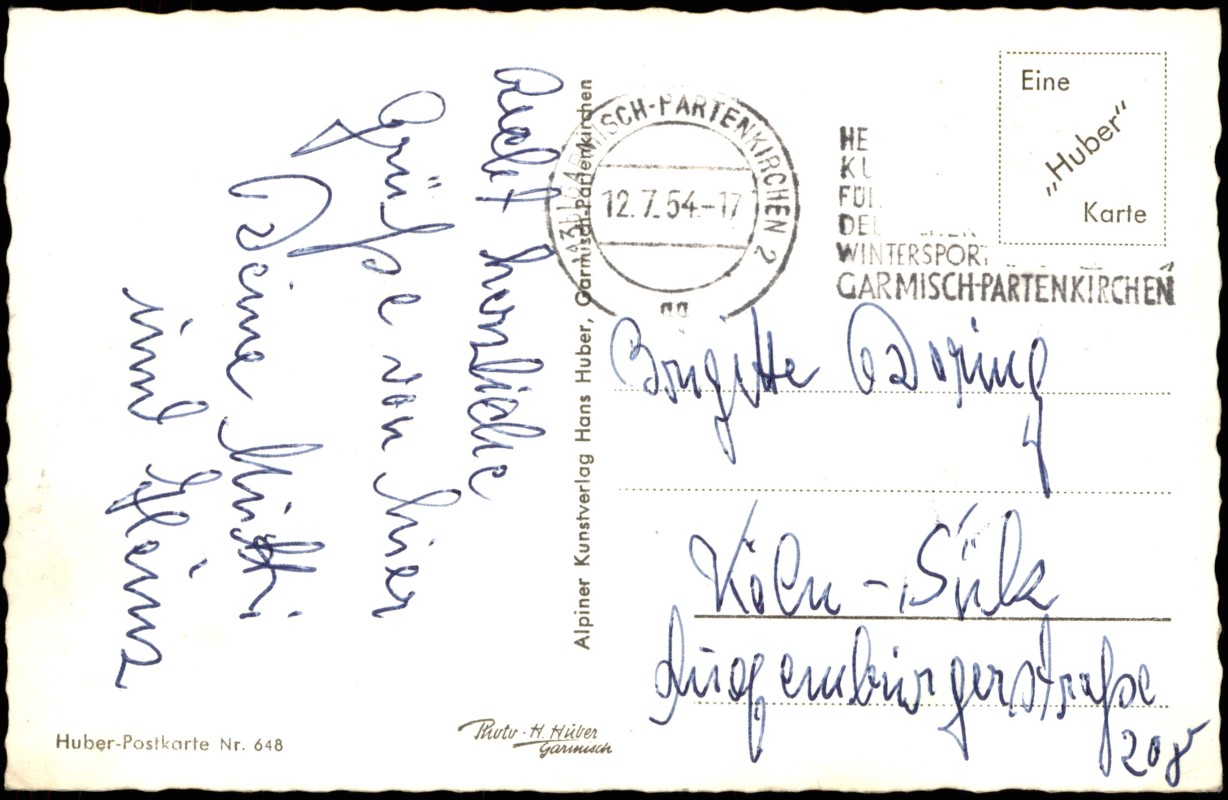 Recht herzliche
Grüße von hier
Deine Mutti
und Heinz
Alpiner Kunstverlag Hans Huber, Garmisch-Partenkirchen
GARMISCH-PARTENKIRCHEN 2
12.7.54.-17
HE
KU
FÜR
DEU
WINTERSPOR
GARMISCH-PARTENKIRCHEN
Eine
„Huber"
Karte
Brigitte
Köln-Sülz
Luxemburgerstraße
Huber-Postkarte Nr. 648
Photo-H. Huber
Garmisch